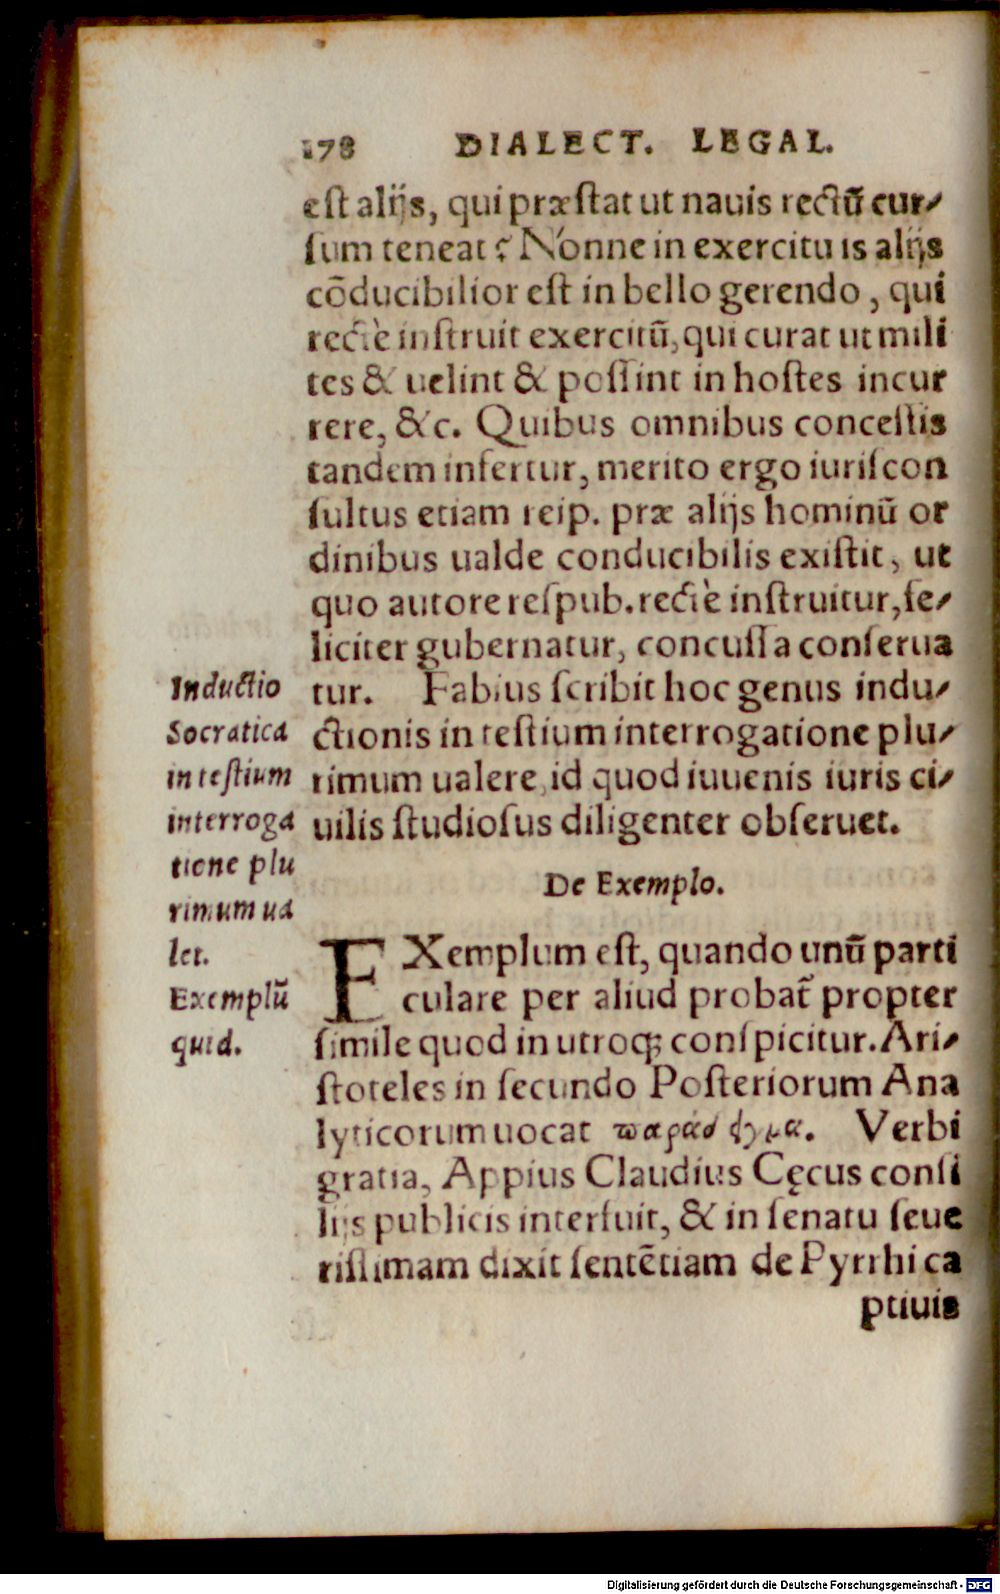 178 DIALECT. LEGAL.
est alijs, qui præstat ut nauis rectū cur⸗
sum teneat? Nónne in exercitu is alijs
cōducibilior est in bello gerendo, qui
rectè instruit exercitū, qui curat ut mili
tes & uelint & possint in hostes incur
rere, &c. Quibus omnibus concessis
tandem infertur, merito ergo iuriscon
sultus etiam reip. præ alijs hominū or
dinibus ualde conducibilis existit, ut
quo autore respub. rectè instruitur, fe⸗
liciter gubernatur, concussa conserua
tur. Fabius scribit hoc genus indu⸗
ctionis in testium interrogatione plu⸗
rimum ualere, id quod iuuenis iuris ci⸗
uilis studiosus diligenter obseruet.
Inductio
Socratica
in testium
interroga
tione plu
rimum ua
let.
De Exemplo.
EXemplum est, quando unū parti
culare per aliud probat᷑ propter
simile quod in utroq; conspicitur. Ari⸗
stoteles in secundo Posteriorum Ana
lyticorum uocat παράδειγμα. Verbi
gratia, Appius Claudius Cęcus consi
lijs publicis interfuit, & in senatu seue
rissimam dixit sentētiam de Pyrrhi ca
ptiuis
Exemplū
quid.
Digitalisierung gefördert durch die Deutsche Forschungsgemeinschaft - DFG